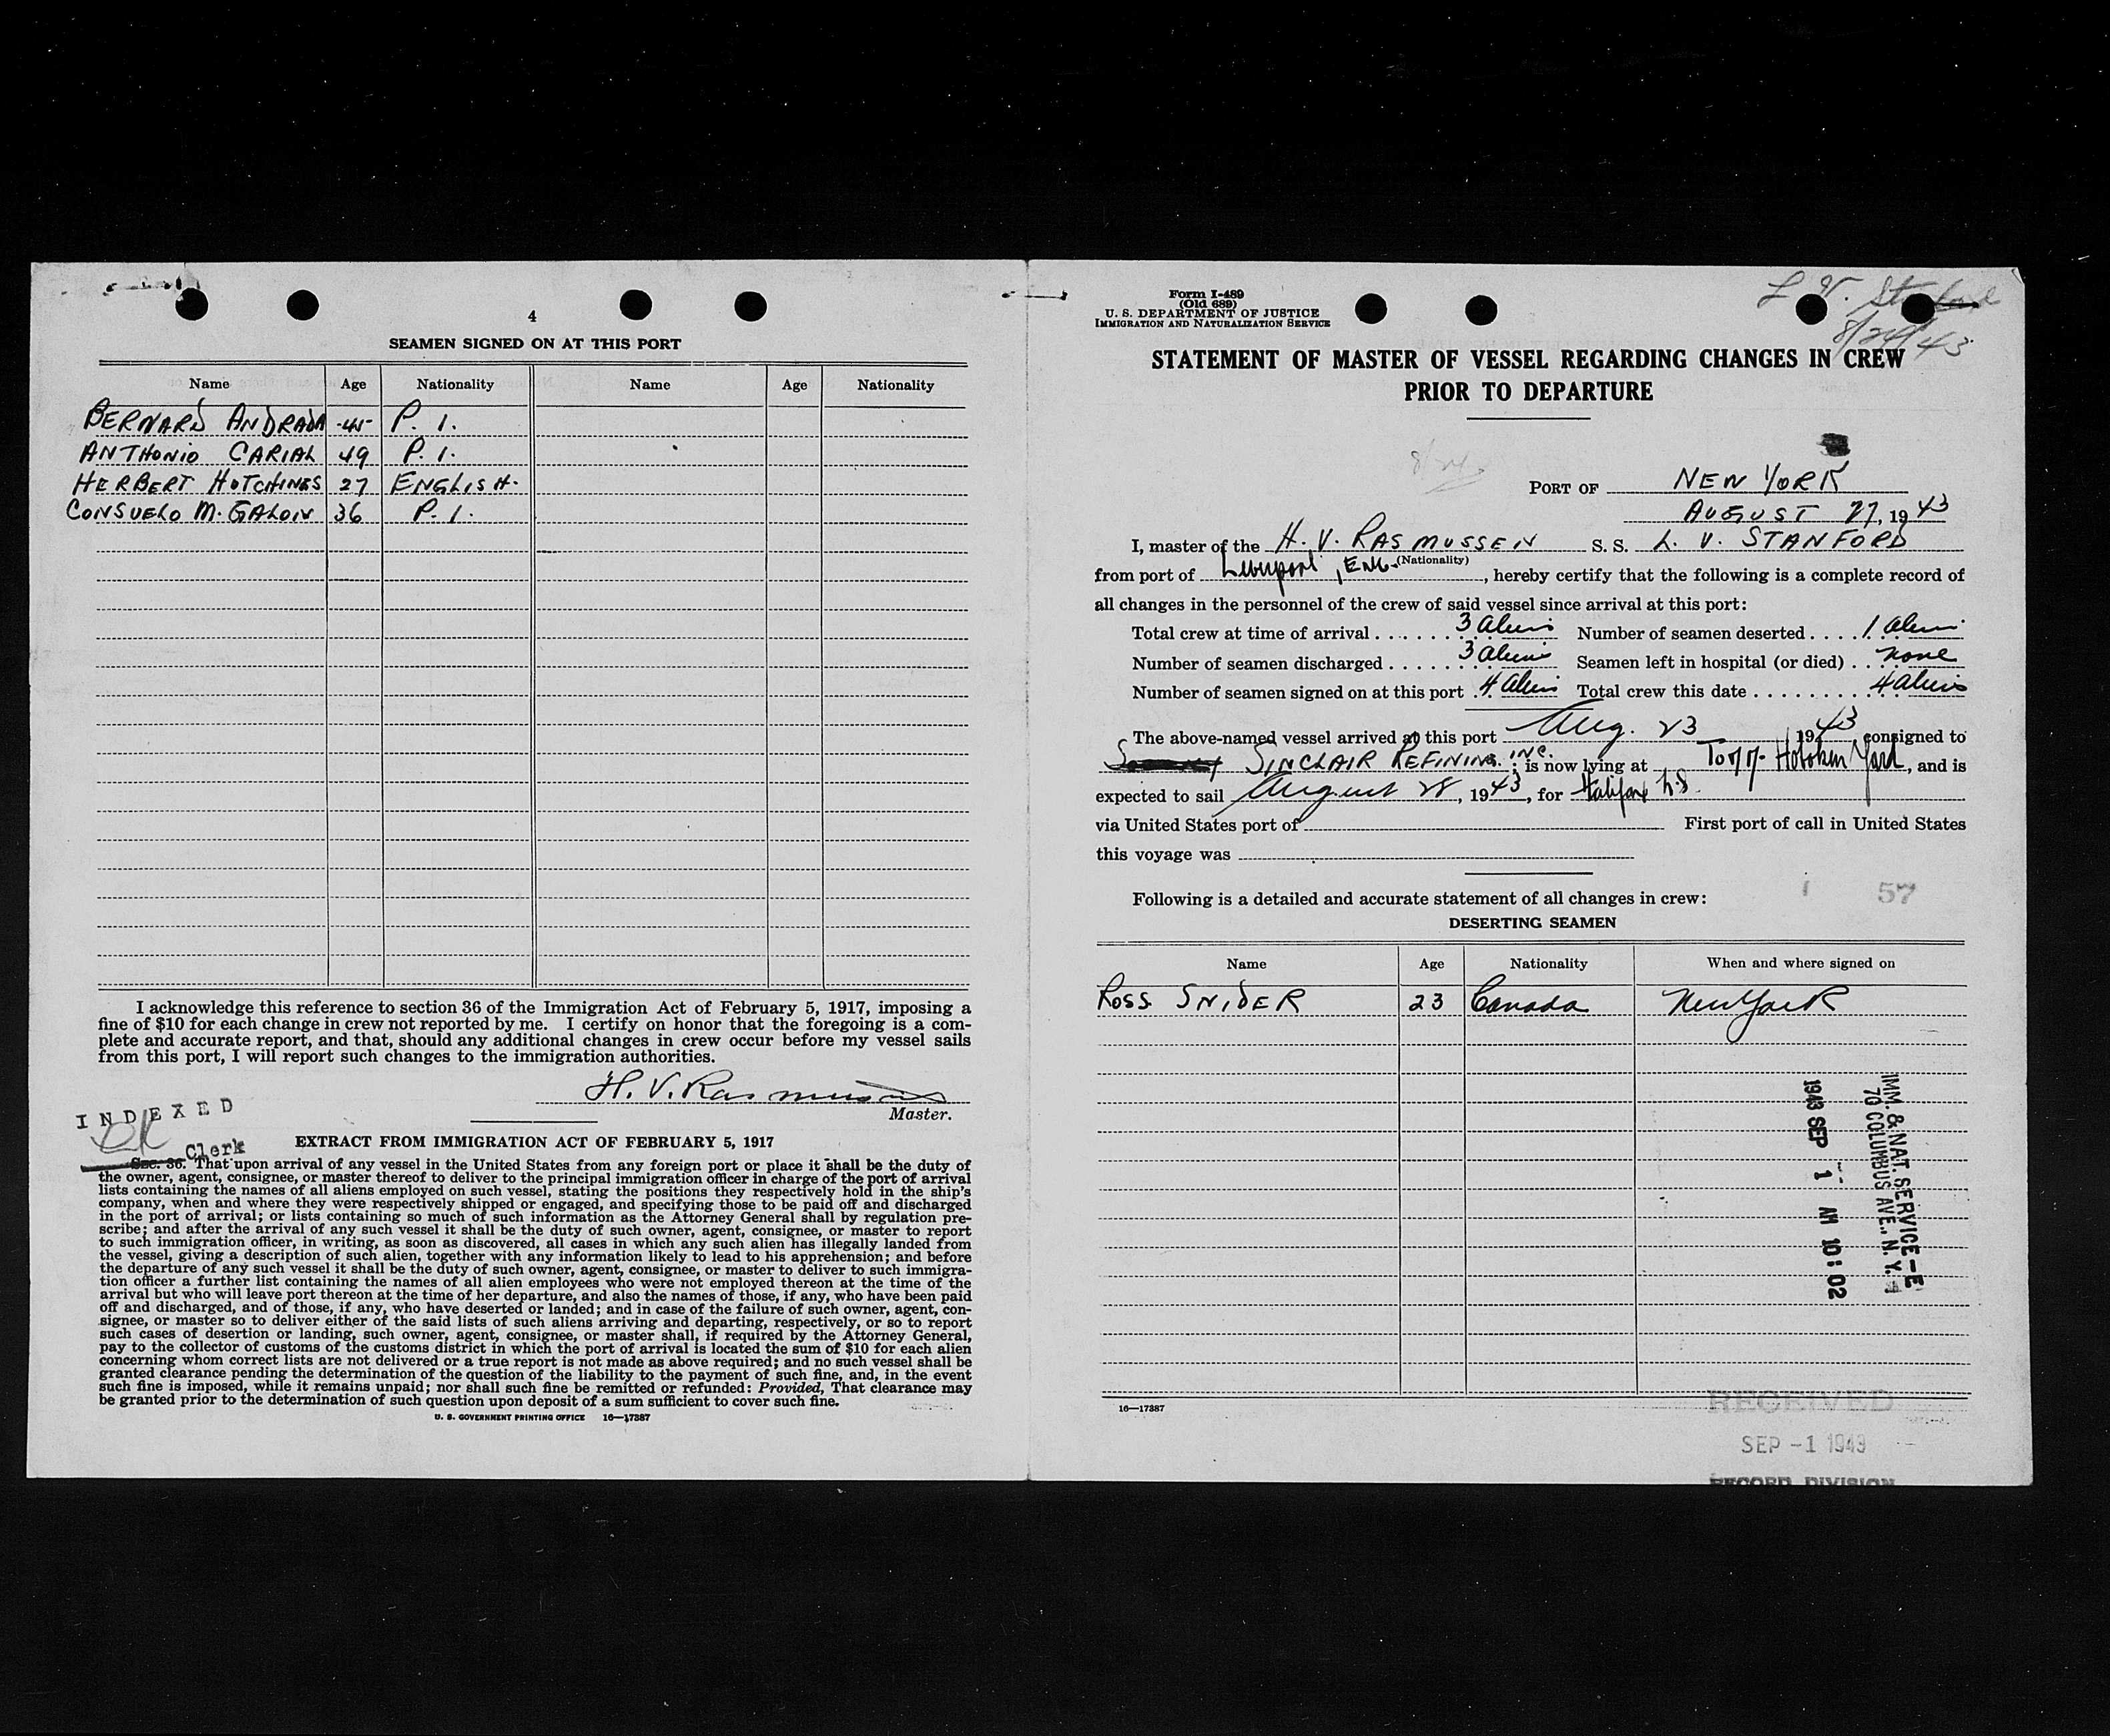 4
SEAMEN SIGNED ON AT THIS PORT
Name Age Nationality Name Age Nationality
BERNARD ANDRADA 45 P. I.
ANTHONIO CARIAL 49 P. I.
HERBERT HUTCHINGS 27 ENGLISH.
CONSUELO M. 36 P. I.
I acknowledge this reference to section 36 of the Immigration Act of February 5, 1917, imposing a
fine of $10 for each change in crew not reported by me. I certify on honor that the foregoing is a com-
plete and accurate report, and that, should any additional changes in crew occur before my vessel sails
from this port, I will report such changes to the immigration authorities.
H. V. Rasmussen
Master.
INDEXED
Clerk
EXTRACT FROM IMMIGRATION ACT OF FEBRUARY 5, 1917
Sec. 36. That upon arrival of any vessel in the United States from any foreign port or place it shall be the duty of
the owner, agent, consignee, or master thereof to deliver to the principal immigration officer in charge of the port of arrival
lists containing the names of all aliens employed on such vessel, stating the positions they respectively hold in the ship's
company, when and where they were respectively shipped or engaged, and specifying those to be paid off and discharged
in the port of arrival; or lists containing so much of such information as the Attorney General shall by regulation pre-
scribe; and after the arrival of any such vessel it shall be the duty of such owner, agent, consignee, or master to report
to such immigration officer, in writing, as soon as discovered, all cases in which any such alien has illegally landed from
the vessel, giving a description of such alien, together with any information likely to lead to his apprehension; and before
the departure of any such vessel it shall be the duty of such owner, agent, consignee, or master to deliver to such immigra-
tion officer a further list containing the names of all alien employees who were not employed thereon at the time of the
arrival but who will leave port thereon at the time of her departure, and also the names of those, if any, who have been paid
off and discharged, and of those, if any, who have deserted or landed; and in case of the failure of such owner, agent, con-
signee, or master so to deliver either of the said lists of such aliens arriving and departing, respectively, or so to report
such cases of desertion or landing, such owner, agent, consignee, or master shall, if required by the Attorney General,
pay to the collector of customs of the customs district in which the port of arrival is located the sum of $10 for each alien
concerning whom correct lists are not delivered or a true report is not made as above required; and no such vessel shall be
granted clearance pending the determination of the question of the liability to the payment of such fine, and, in the event
such fine is imposed, while it remains unpaid; nor shall such fine be remitted or refunded: Provided, That clearance may
be granted prior to the determination of such question upon deposit of a sum sufficient to cover such fine.
U. S. GOVERNMENT PRINTING OFFICE 16—17387
Form I-489
(Old 689)
U. S. DEPARTMENT OF JUSTICE
IMMIGRATION AND NATURALIZATION SERVICE
L. V. Stanford
8/24/43
STATEMENT OF MASTER OF VESSEL REGARDING CHANGES IN CREW
PRIOR TO DEPARTURE
8/24
PORT OF NEW YORK
AUGUST 27, 1943
I, master of the H. V. RASMUSSEN S. S. L. V. STANFORD
(Nationality)
from port of Liverpool, ENG., hereby certify that the following is a complete record of
all changes in the personnel of the crew of said vessel since arrival at this port:
Total crew at time of arrival 3 aliens Number of seamen deserted 1 alien
Number of seamen discharged 3 aliens Seamen left in hospital (or died) none
Number of seamen signed on at this port 4 aliens Total crew this date 4 aliens
The above-named vessel arrived at this port Aug. 23 1943 consigned to
SINCLAIR REFINING INC. is now lying at Todd Hoboken Yard, and is
expected to sail August 28, 1943, for Halifax N.S.
via United States port of First port of call in United States
this voyage was
Following is a detailed and accurate statement of all changes in crew:
57
DESERTING SEAMEN
Name Age Nationality When and where signed on
ROSS SNIDER 23 Canada New York
IMM. & NAT. SERVICE-E
70 COLUMBUS AVE., N. Y.
1943 SEP 1 AM 10:02
16—17387
RECEIVED
SEP -1 1943
RECORD DIVISION